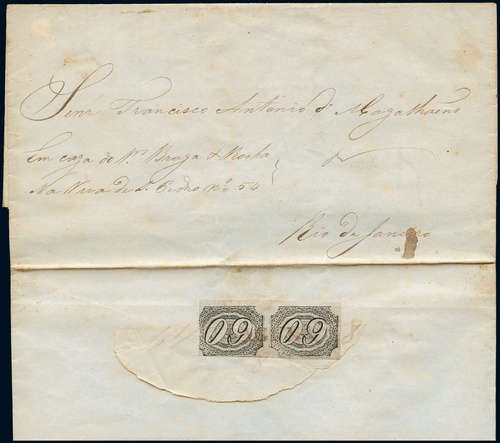 Senr Francisco Antonio d' Magalhaens
Em caza do Srs Braga & Rocha
Na Rua de S. Pedro No 54
Rio de Janeiro
60 60